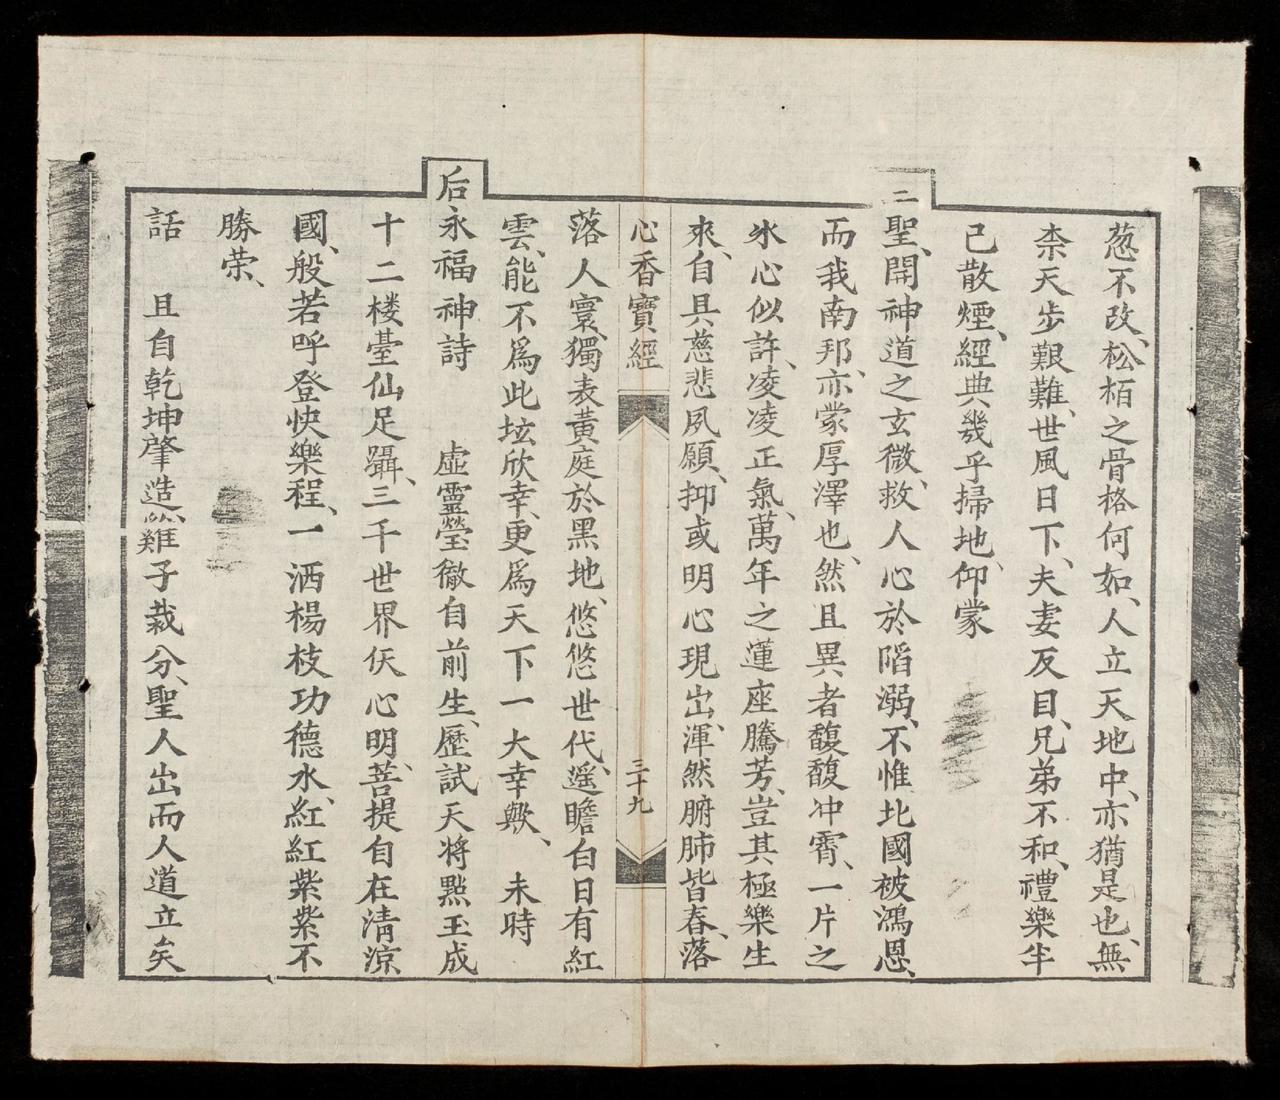 葱不改、松栢之骨格何如、人立天地中、亦猶是也、無
柰天步艱難、世風日下、夫妻反目、兄弟不和、禮樂半
已散煙、經典幾乎掃地、仰蒙
二聖、開神道之玄微、救人心於陷溺、不惟北國被鴻恩、
而我南邦、亦蒙厚澤也、然且異者馥馥冲霄、一片之
氷心似許、凌凌正氣、萬年之蓮座騰芳、豈其極樂生
來、自具慈悲夙願、抑或明心現出、渾然腑肺皆春、落
心香寶經
三十九
落人寰、獨表黃庭於黑地、悠悠世代、遥瞻白日有紅
雲、能不爲此坛欣幸、更爲天下一大幸歟、 未時
后永福神詩 虛靈瑩徹自前生、歷試天將點玉成
十二楼臺仙足躡、三千世界仸心明、菩提自在清凉
國、般若呼登快樂程、一洒楊枝功德水、紅紅紫紫不
勝荣、
話 且自乾坤肇造、雞子裁分、聖人出而人道立矣